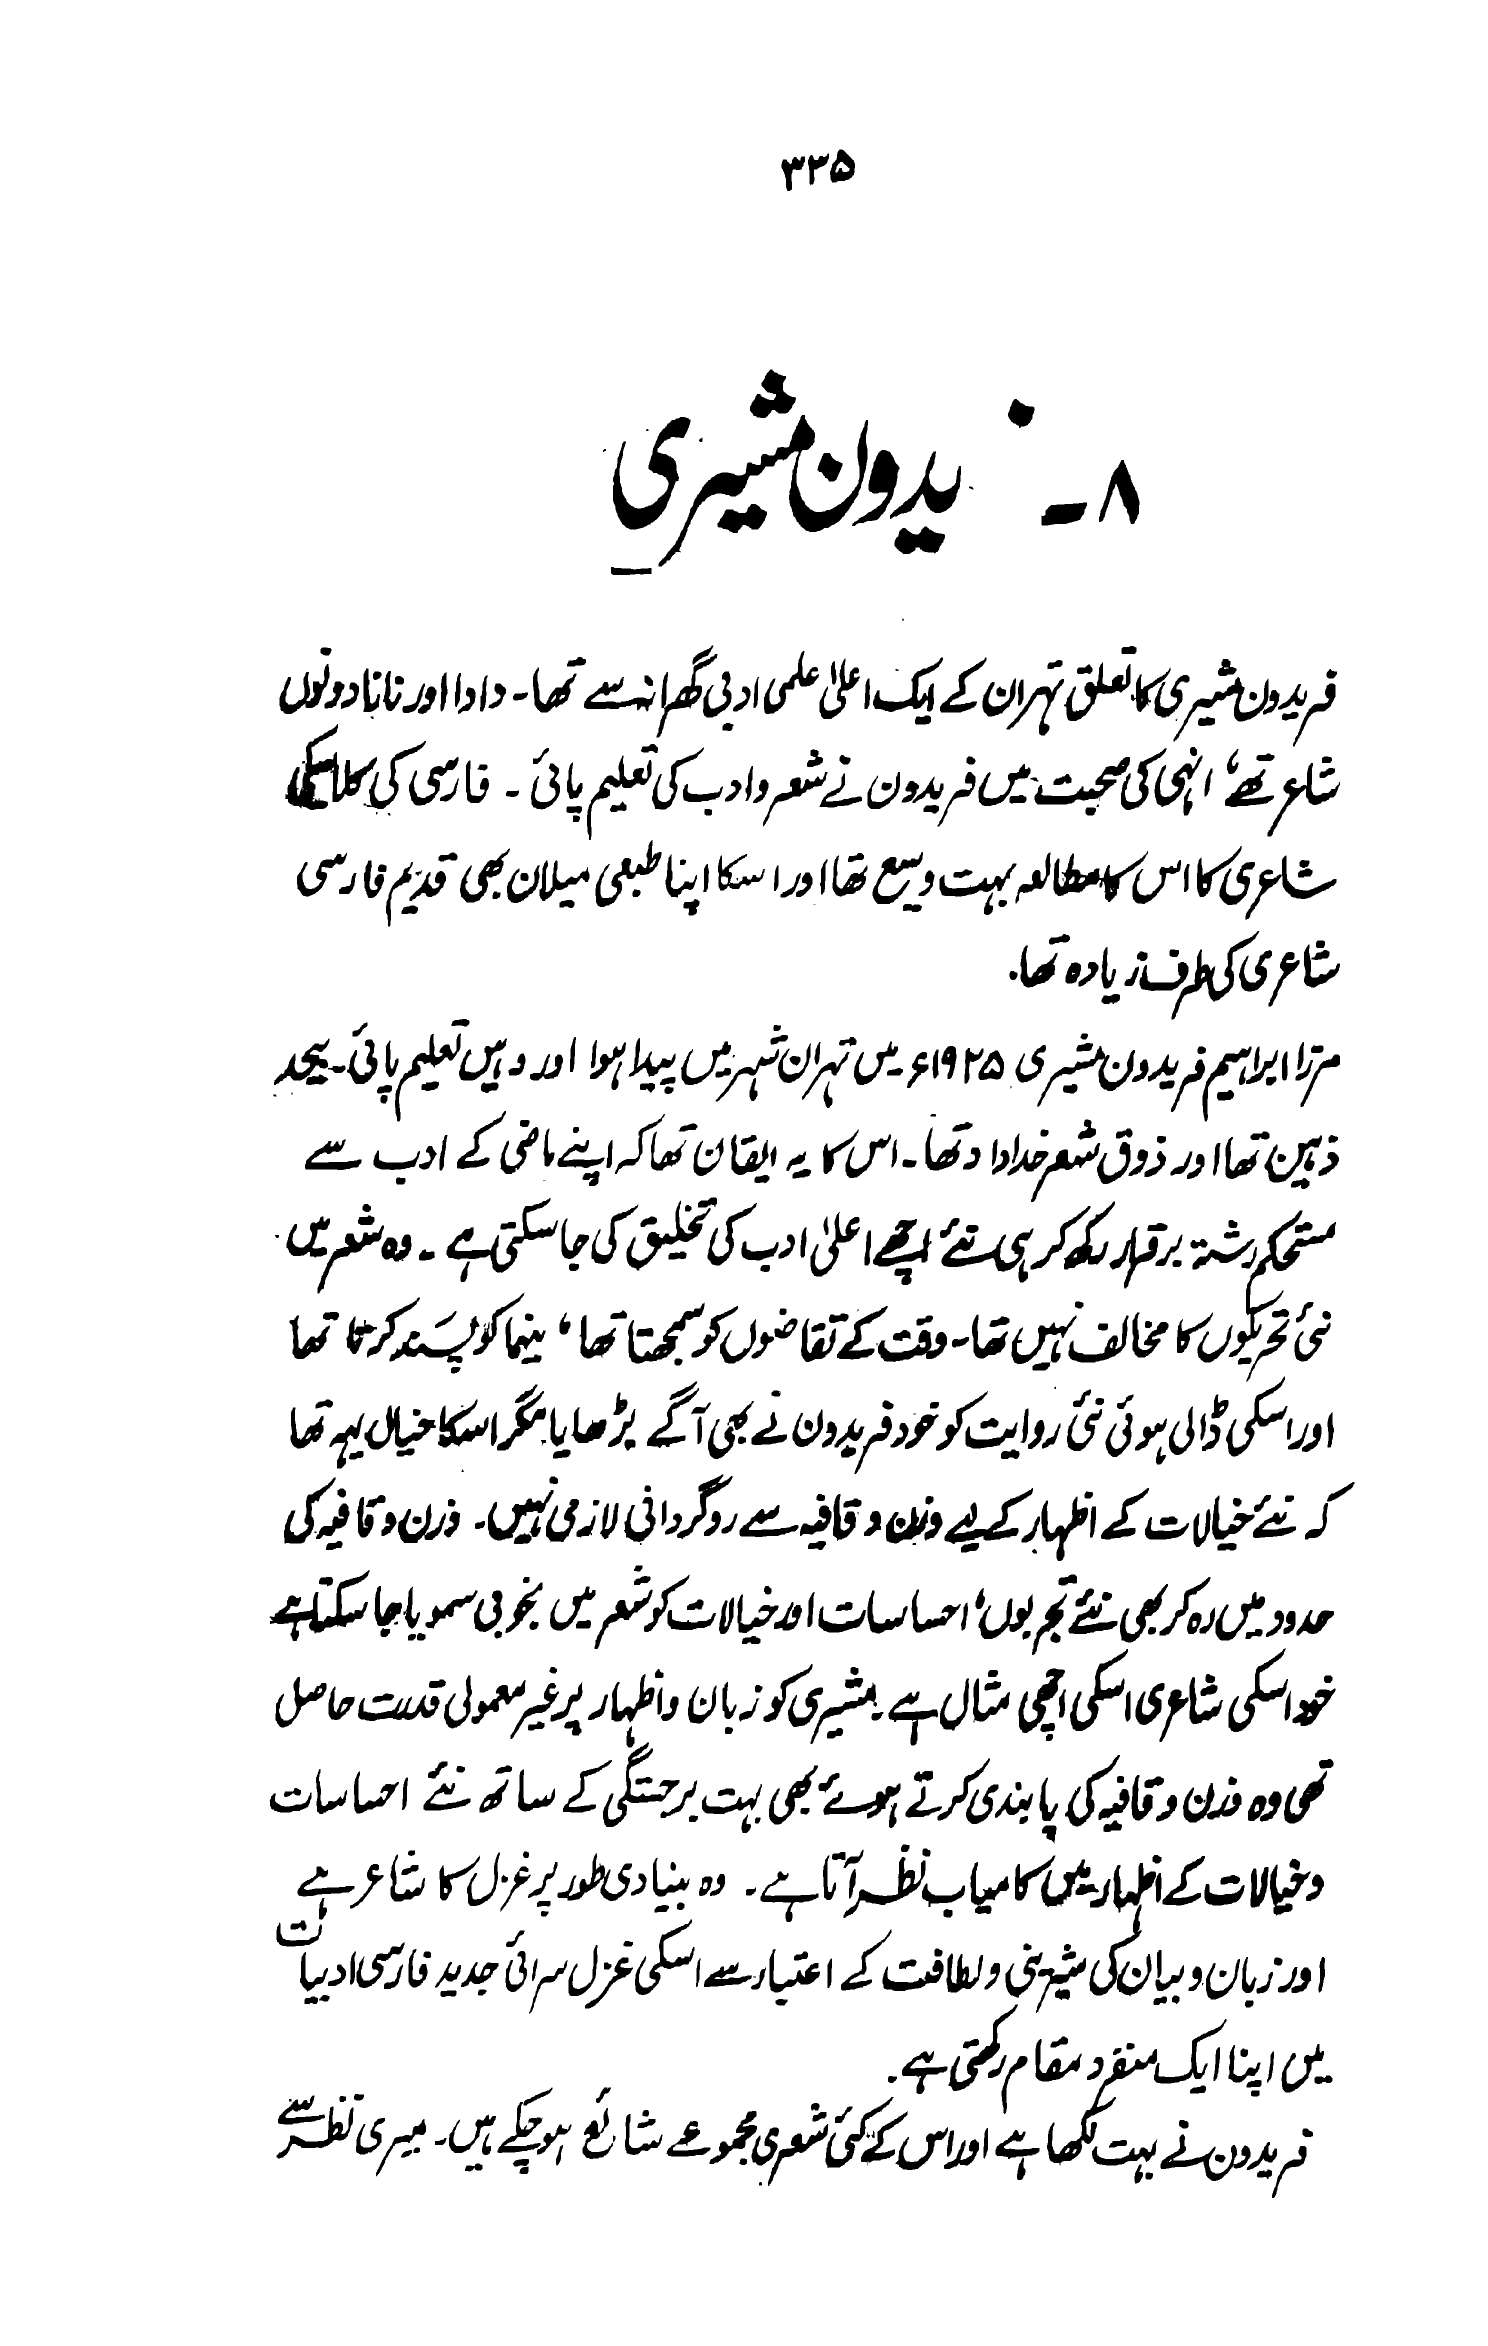 ۳۳۵
۸۔ فریدون مشیری
فریدون مشیری کا تعلق تہران کے ایک اعلیٰ علمی ادبی گھرانہ سے تھا۔ دادا اور نانا دونوں
شاعر تھے، انہی کی صحبت میں فریدون نے شعر و ادب کی تعلیم پائی ۔ فارسی کی کلاسکی
شاعری کا اس کا مطالعہ بہت وسیع تھا اور اسکا اپنا طبعی میلان بھی قدیم فارسی
شاعری کی طرف زیادہ تھا۔
مرزا ابراہیم فریدون مشیری ۱۹۲۵ء میں تہران شہر میں پیدا ہوا اور وہیں تعلیم پائی۔ بیحد
ذہین تھا اور ذوق شعر خداداد تھا۔ اس کا یہ ایقان تھا کہ اپنے ماضی کے ادب سے
مستحکم رشتہ برقرار رکھ کر ہی نئے اچھے اعلیٰ ادب کی تخلیق کی جا سکتی ہے ۔ وہ شعر میں
نئی تحریکوں کا مخالف نہیں تھا۔ وقت کے تقاضوں کو سمجھتا تھا، نیما کو پسند کرتا تھا
اور اسکی ڈالی ہوئی نئی روایت کو خود فریدون نے بھی آگے بڑھایا مگر اسکا خیال یہہ تھا
کہ نئے خیالات کے اظہار کے لیے وزن و قافیہ سے روگردانی لازمی نہیں۔ وزن و قافیہ کی
حدود میں رہ کر بھی نئے تجربوں، احساسات اور خیالات کو شعر میں بخوبی سمویا جا سکتا ہے
خود اسکی شاعری اسکی اچھی مثال ہے۔ مشیری کو زبان و اظہار پر غیر معمولی قدرت حاصل
تھی وہ وزن و قافیہ کی پابندی کرتے ہوئے بھی بہت برجستگی کے ساتھ نئے احساسات
و خیالات کے اظہار میں کامیاب نظر آتا ہے۔ وہ بنیادی طور پر غزل کا شاعر ہے
اور زبان و بیان کی شیرینی و لطافت کے اعتبار سے اسکی غزل سرائی جدید فارسی ادبیات
میں اپنا ایک منفرد مقام رکھتی ہے۔
فریدون نے بہت لکھا ہے اور اس کے کئی شعری مجموعے شائع ہو چکے ہیں۔ میری نظر سے